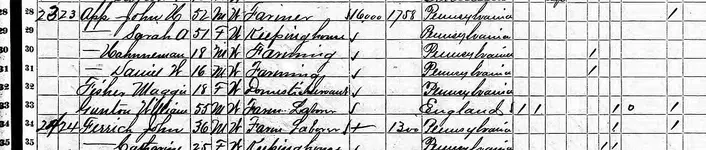 28 23 23 App John H 52 M W Farmer $16000 1758 Pennsylvania 1 28
29 — Sarah A 51 F W Keeping house Pennsylvania 29
30 — Hahnneman 18 M W Farming Pennsylvania 1 30
31 — Daniel W 16 M W Farming Pennsylvania 1 31
32 Fisher Maggie 18 F W Domestic Servant Pennsylvania 32
33 William 55 M W Farm Labor England 1 1 1 0 1 33
34 24 24 John 36 M W Farm Laborer 1300 Pennsylvania 1 1 34
35 Catharine 25 F W Keeping house Pennsylvania 1 1 35